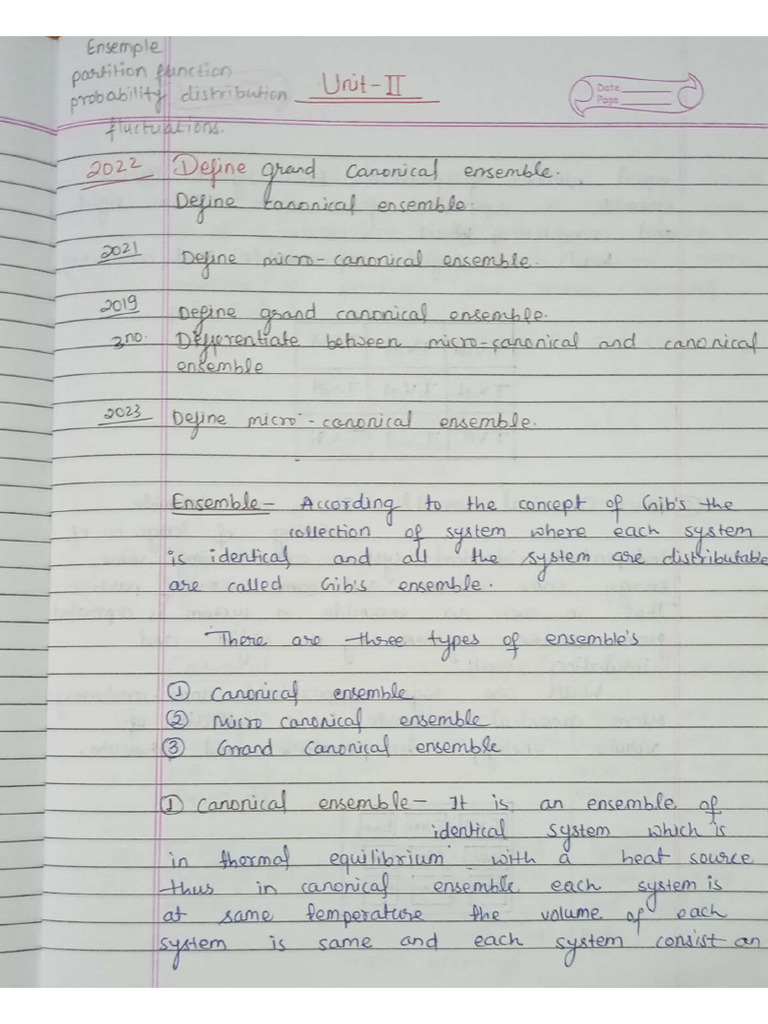 Ensemple
partition function
probability distribution
fluctuations.
Unit-II
Date
Page
2022 Define grand canonical ensemble.
Define canonical ensemble.
2021 Define micro-canonical ensemble.
2019 Define grand canonical ensemble.
2nd. Differentiate between micro-canonical and canonical
ensemble
2023 Define micro-canonical ensemble.
Ensemble- According to the concept of Gib's the
collection of system where each system
is identical and all the system are distributable
are called Gib's ensemble.
There are three types of ensemble's
① Canonical ensemble
② Micro canonical ensemble
③ Grand Canonical ensemble
① Canonical ensemble- It is an ensemble of
identical system which is
in thermal equilibrium with a heat source
thus in canonical ensemble each system is
at same temperature the volume of each
system is same and each system consist an